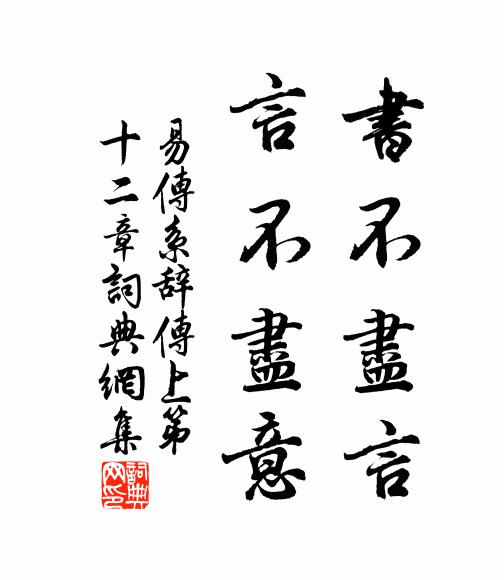 書不盡言
言不盡意
易傳系辞傳上第
十二章詞典網集
詞典网印